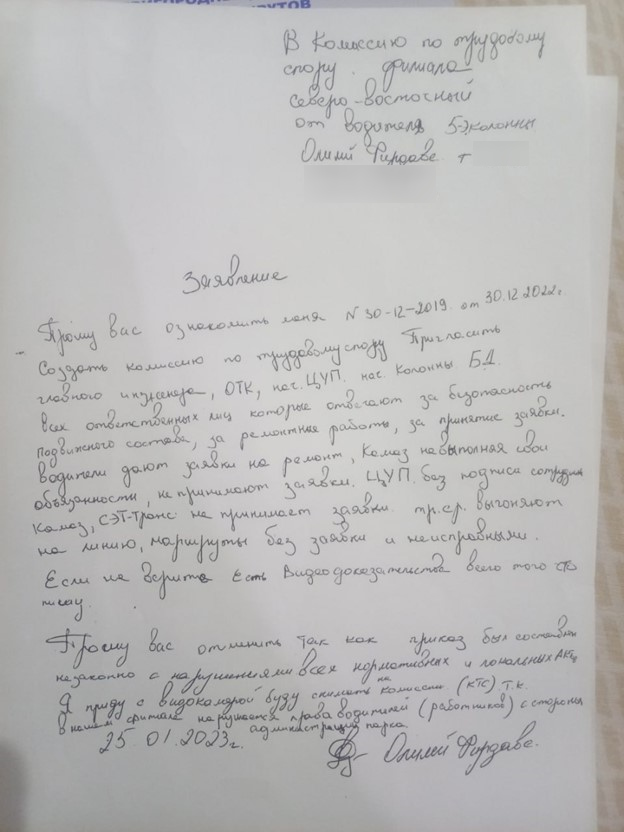 РУТОВ
В Комиссию по трудовому
спору. филиала
северо-восточный
от водителя 5-Э колонны
Олилй Фирдавс. т
Заявление
Прошу вас ознакомить меня N 30-12-2019. от 30.12.2022г.
Создать комиссию по трудовому спору Пригласить
главного инженера, ОТК, нас. ЦУП. нас. Колонны БД.
всех ответственных лиц которые отвечают за безопасность
подвижного состава, за ремонтные работы, за принятие заявки.
водители дают заявки на ремонт, Камаз не выполняя свои
обьязанности, не принимают заявки. ЦУП. без подписа сотрудник
Камаз, СЭТ-Транс не принимает заявки. тр.ср. выгоняют
на линию, маршруты без заявки и неисправными.
Если не верите Есть Видеодоказательства всего того что
писау.
Прошу вас отменить так как приказ был составлен
незаконно с нарушениями всех нормативных и локальных Акт
Я приду с видокамерой буду снимать на комиссии. (КТС) т.к.
в нашем филиале нарушается права водителей (работников) с стороны
администрации парка.
25 01.2023г. Олилй Фирдавс.